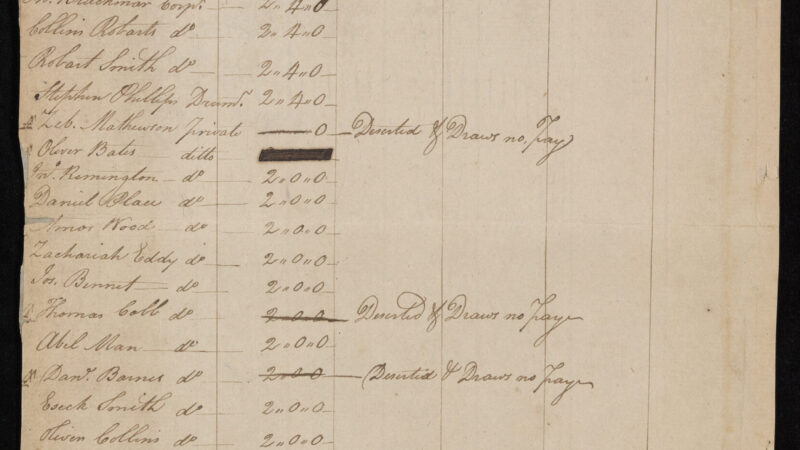 Jno. Blackmar Corpl. 2,,4,,0
Collins Robarts do 2,,4,,0
Robart Smith do 2,,4,,0
Stephen Phillips Drumr. 2,,4,,0
Zeb. Mathewson Private 0 Desertid & Draws no. Pay
Oliver Bates ditto
Jno. Remington do 2,,0,,0
Daniel Place do 2,,0,,0
Amos Wood do 2,,0,,0
Zachariah Eddy do 2,,0,,0
Jos. Bennet do 2,,0,,0
Thomas Cobb do 2 0 0 Desertid & Draws no Pay
Abel Man do 2,,0,,0
Danl. Barnes do 2 0 0 Desertid & Draws no Pay
Eseck Smith do 2,,0,,0
Oliver Collins do 2,,0,,0